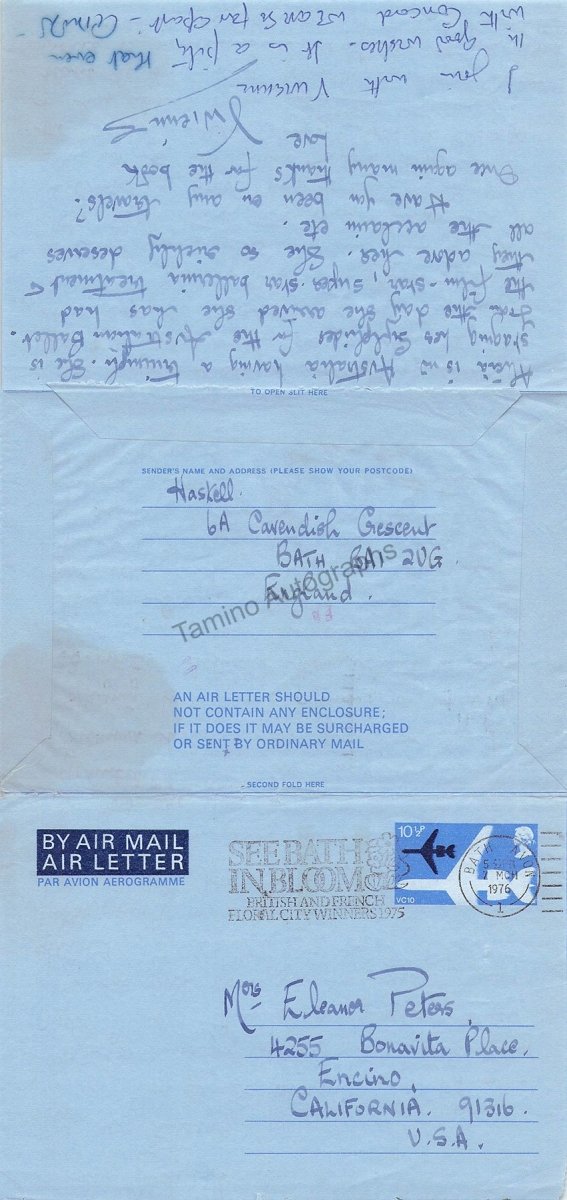 Alicia is in Australia having a triumph. She is
staging Les Sylphides for the Australian Ballet.
From the day she arrived she has had
the film-star, super-star ballerina treatment &
they adore her. She so richly deserves
all the acclaim etc.
Have you been on any travels?
Once again many thanks for the book
Love
I join with Vivienne
in good wishes. It is a pity that even
with Concord we are so far apart -
TO OPEN SLIT HERE
SENDER'S NAME AND ADDRESS (PLEASE SHOW YOUR POSTCODE)
Haskell.
6A Cavendish Crescent
BATH BA1 2UG.
England.
Tamino Autographs
AN AIR LETTER SHOULD
NOT CONTAIN ANY ENCLOSURE;
IF IT DOES IT MAY BE SURCHARGED
OR SENT BY ORDINARY MAIL
SECOND FOLD HERE
BY AIR MAIL
AIR LETTER
PAR AVION AEROGRAMME
SEE BATH
IN BLOOM
BRITISH AND FRENCH
FLORAL CITY WINNERS 1975
10½P
VC10
BATH AVON
7 MCH
1976
1
Mrs Eleanor Peters,
4255 Bonavita Place,
Encino,
CALIFORNIA. 91316.
U.S.A.